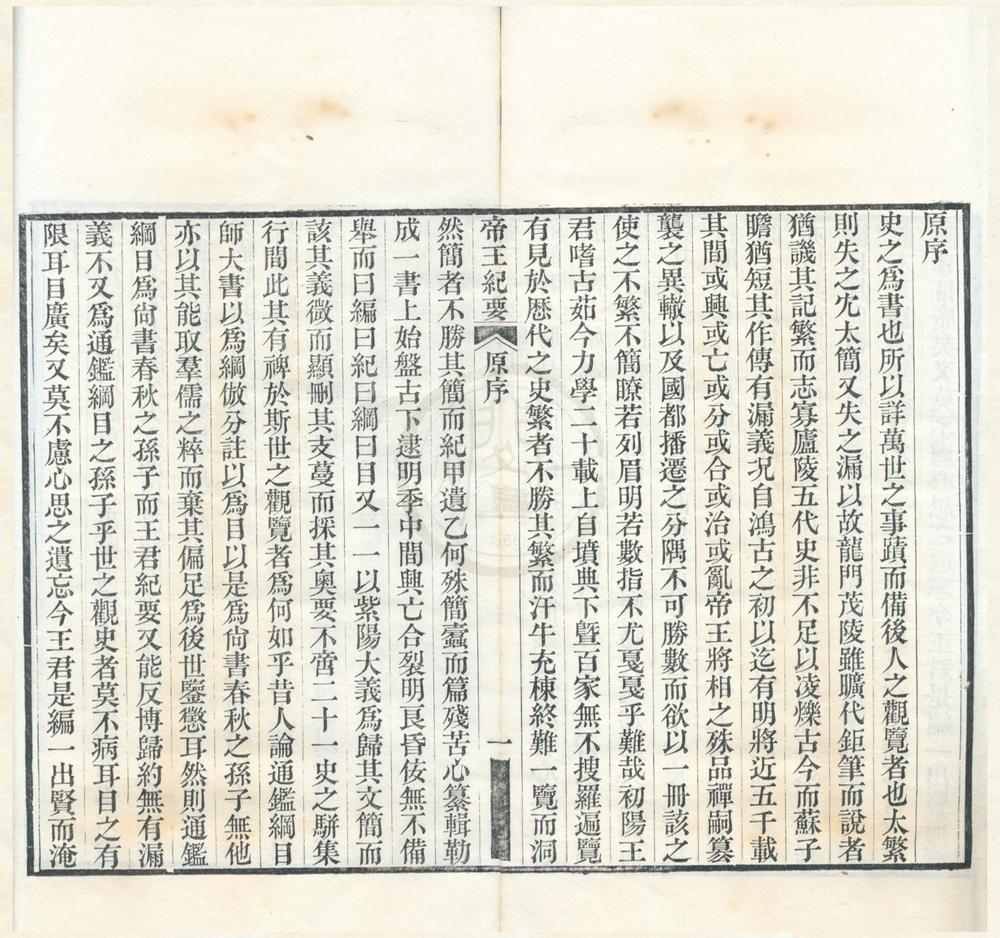 原序
史之爲書也所以詳萬世之事蹟而備後人之觀覽者也太繁
則失之冗太簡又失之漏以故龍門茂陵雖曠代鉅筆而說者
猶譏其記繁而志寡廬陵五代史非不足以凌爍古今而蘇子
瞻猶短其作傳有漏義况自鴻古之初以迄有明將近五千載
其間或興或亡或分或合或治或亂帝王將相之殊品禪嗣篡
襲之異轍以及國都播遷之分隅不可勝數而欲以一冊該之
使之不繁不簡瞭若列眉明若數指不尤戛戛乎難哉初陽王
君嗜古茹今力學二十載上自墳典下曁百家無不搜羅遍覽
有見於歷代之史繁者不勝其繁而汗牛充棟終難一覽而洞
帝王紀要 原序 一
然簡者不勝其簡而紀甲遺乙何殊簡蠹而篇殘苦心纂輯勒
成一書上始盤古下逮明季中間興亡合裂明良昏佞無不備
舉而曰編曰紀曰綱曰目又一一以紫陽大義爲歸其文簡而
該其義微而顯刪其支蔓而採其奧要不啻二十一史之駢集
行間此其有裨於斯世之觀覽者爲何如乎昔人論通鑑綱目
師大書以爲綱倣分註以爲目以是爲尙書春秋之孫子無他
亦以其能取羣儒之粹而棄其偏足爲後世鑒懲耳然則通鑑
綱目爲尙書春秋之孫子而王君紀要又能反博歸約無有漏
義不又爲通鑑綱目之孫子乎世之觀史者莫不病耳目之有
限耳目廣矣又莫不慮心思之遺忘今王君是編一出賢而淹